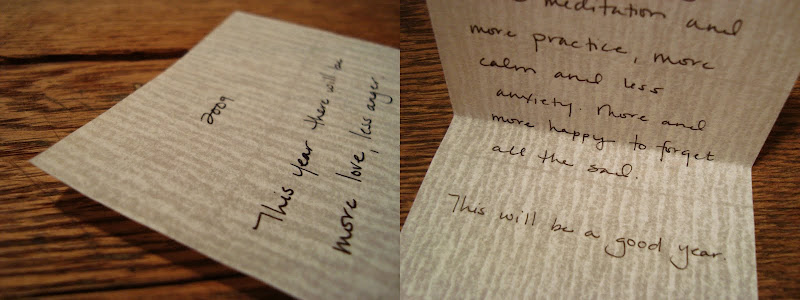 2009
This year there will be
more love, less anger
meditation and
more practice, more
calm and less
anxiety. More and
more happy to forget
all the sad.
This will be a good year.